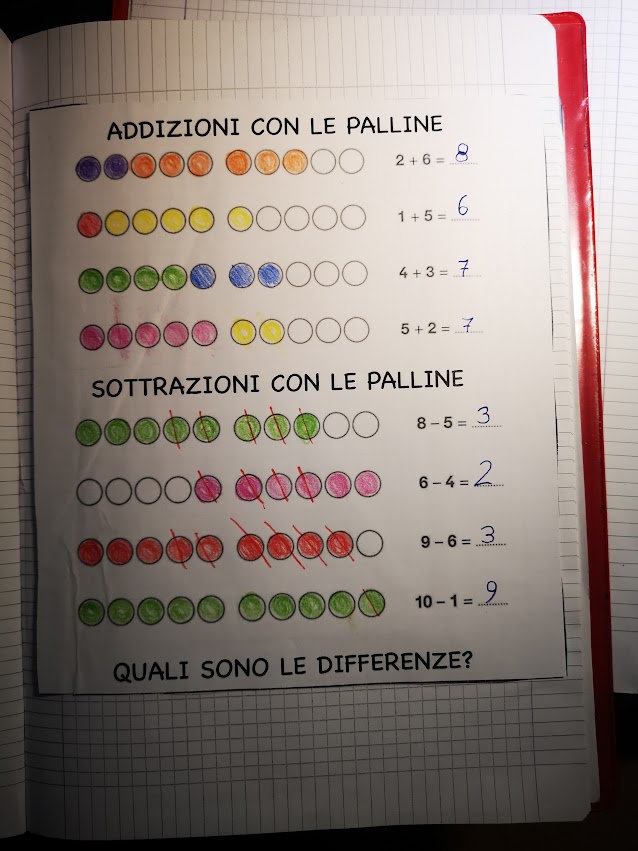 ADDIZIONI CON LE PALLINE
2 + 6 = 8
1 + 5 = 6
4 + 3 = 7
5 + 2 = 7
SOTTRAZIONI CON LE PALLINE
8 – 5 = 3
6 – 4 = 2
9 – 6 = 3
10 – 1 = 9
QUALI SONO LE DIFFERENZE?